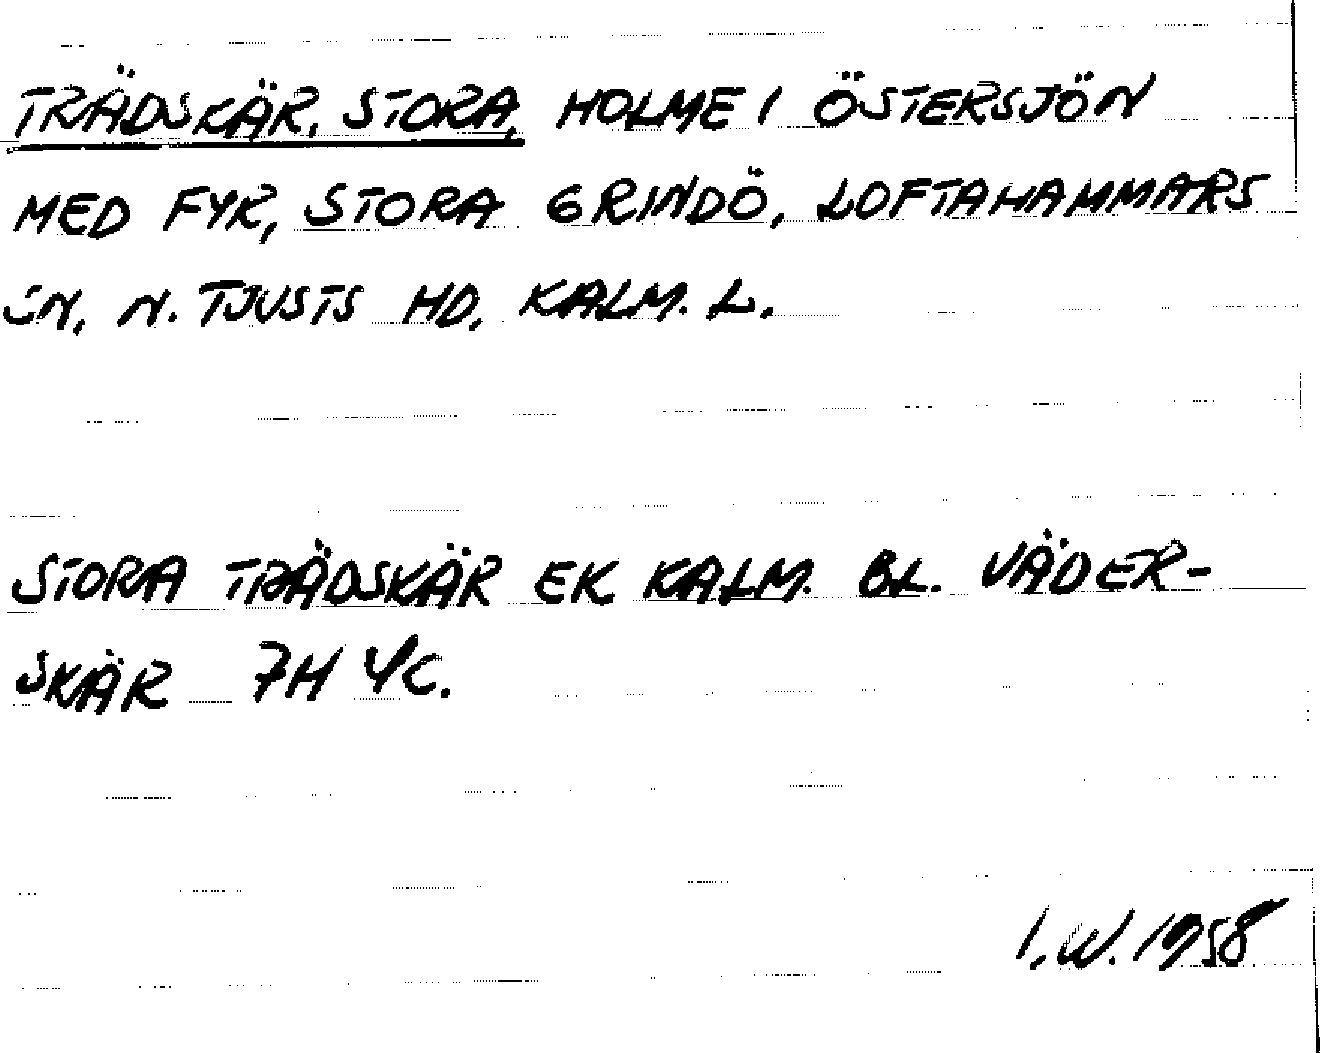 TRÄDSKÄR, STORA, HOLME I ÖSTERSJÖN
MED FYR, STORA GRINDÖ, LOFTAHAMMARS
SN, N. TJUSTS HD, KALM. L.
STORA TRÄDSKÄR EK KALM. BL. VÄDER-
SKÄR 7H YC.
I.W. 1958